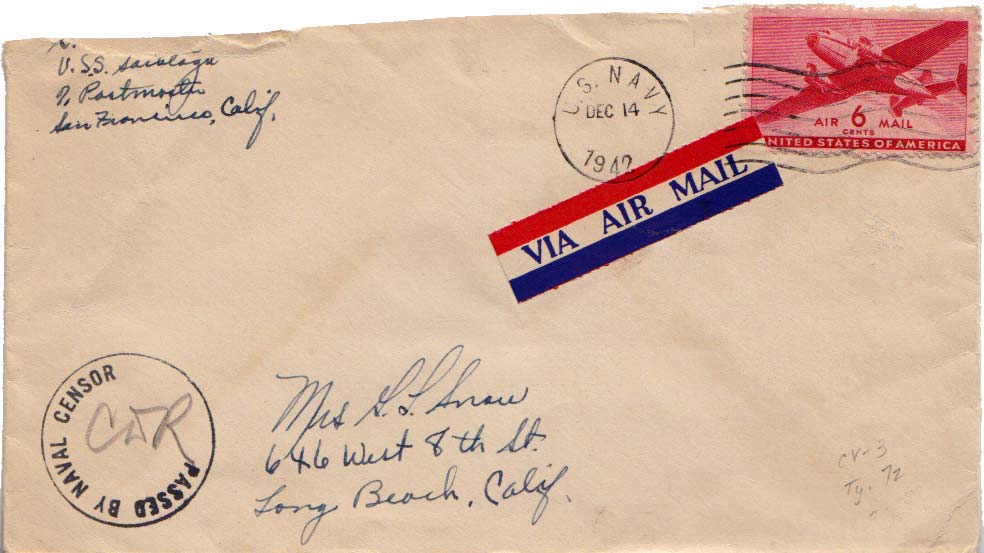 U.S.S. Saratoga
% Postmaster
San Francisco, Calif.
U.S. NAVY
DEC 14
1942
AIR 6 MAIL
CENTS
UNITED STATES OF AMERICA
VIA AIR MAIL
PASSED BY NAVAL CENSOR
CDR
Mrs G. L. Snow
646 West 8th St.
Long Beach, Calif.
CV-3
Ty. 72